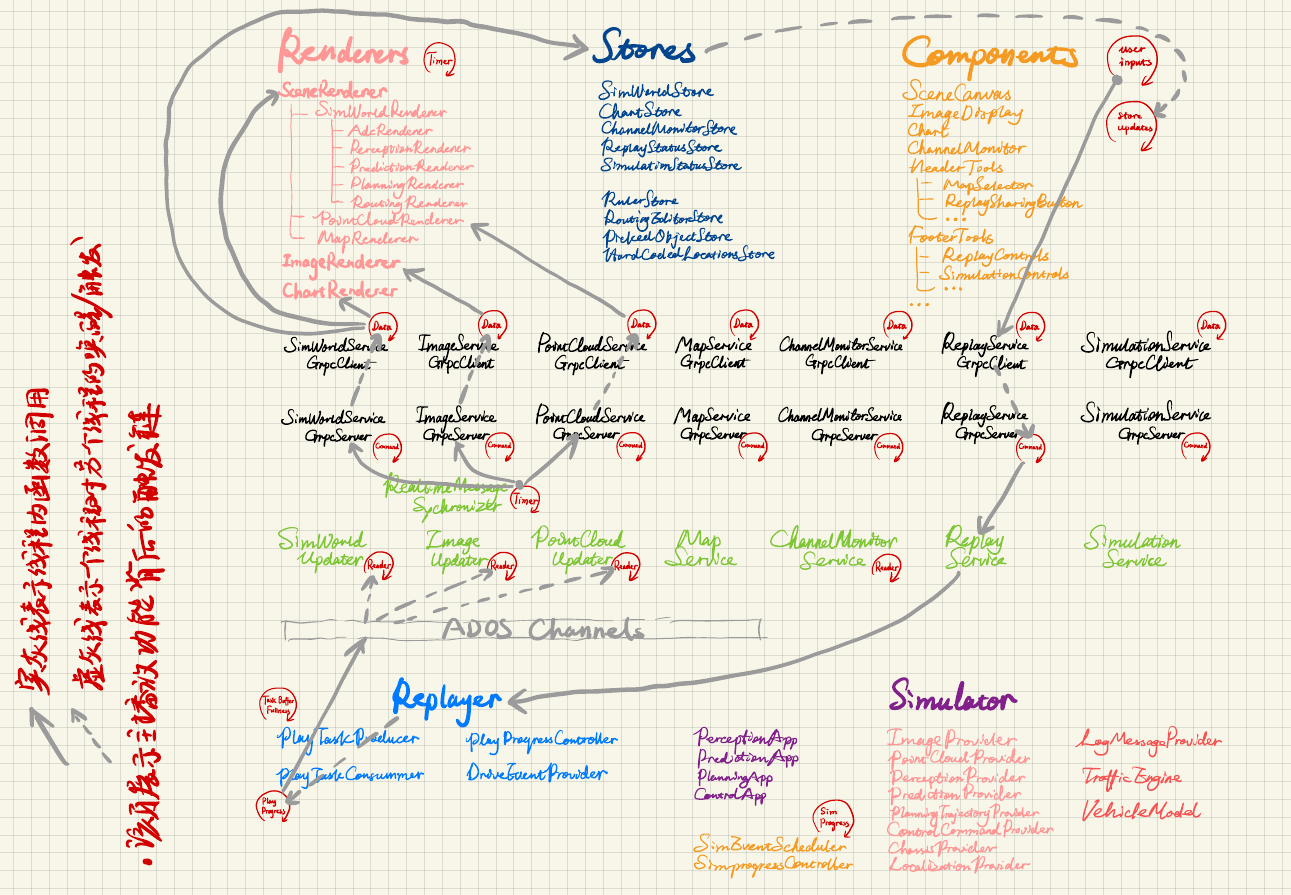 Renderers
Timer
SceneRenderer
SimWorldRenderer
AdcRenderer
PerceptionRenderer
PredictionRenderer
PlanningRenderer
RoutingRenderer
PointCloudRenderer
MapRenderer
ImageRenderer
ChartRenderer
Stores
SimWorldStore
ChartStore
ChannelMonitorStore
ReplayStatusStore
SimulationStatusStore
RulerStore
RoutingEditorStore
PickedObjectStore
HardCodedLocationsStore
Components
User
inputs
Store
updates
SceneCanvas
ImageDisplay
Chart
ChannelMonitor
HeaderTools
MapSelector
ReplaySharingButton
...
FooterTools
ReplayControls
SimulationControls
...
...
Data
Data
Data
Data
Data
Data
Data
SimWorldService
GrpcClient
ImageService
GrpcClient
PointCloudService
GrpcClient
MapService
GrpcClient
ChannelMonitorService
GrpcClient
ReplayService
GrpcClient
SimulationService
GrpcClient
SimWorldService
GrpcServer
ImageService
GrpcServer
PointCloudService
GrpcServer
MapService
GrpcServer
ChannelMonitorService
GrpcServer
ReplayService
GrpcServer
SimulationService
GrpcServer
Command
Command
Command
Command
Command
Command
Command
RealtimeMessage
Sychronizer
Timer
SimWorld
Updater
Image
Updater
PointCloud
Updater
Map
Service
ChannelMonitor
Service
Replay
Service
Simulation
Service
Render
Render
Render
Render
ADOS Channels
Replayer
Task Buffer
Fullness
PlayTaskProducer
PlayProgressController
PlayTaskConsummer
DriveEventProvider
Play
Progress
Simulator
PerceptionApp
PredictionApp
PlanningApp
ControlApp
Sim
Progress
SimEventScheduler
SimprogressController
ImageProvider
PointCloudProvider
PerceptionProvider
PredictionProvider
PlanningTrajectoryProvider
ControlCommandProvider
ChassisProvider
LocalizationProvider
LogMessageProvider
TrafficEngine
VehicleModel
实灰线表示线程内函数调用
虚灰线表示一个线程对另个线程的影响/触发
·该页展示主播放功能背后的触发链